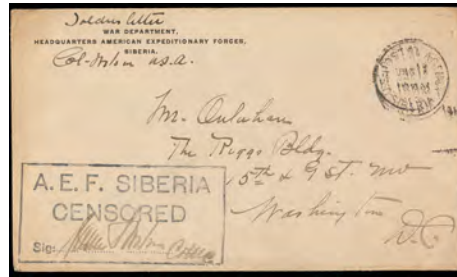 Soldiers letter
WAR DEPARTMENT,
HEADQUARTERS AMERICAN EXPEDITIONARY FORCES,
SIBERIA.
Mr. Oulahan
The Riggs Bldg.
15th & G St. NW
Washington
D.C.
A. E. F. SIBERIA
CENSORED
Sig: